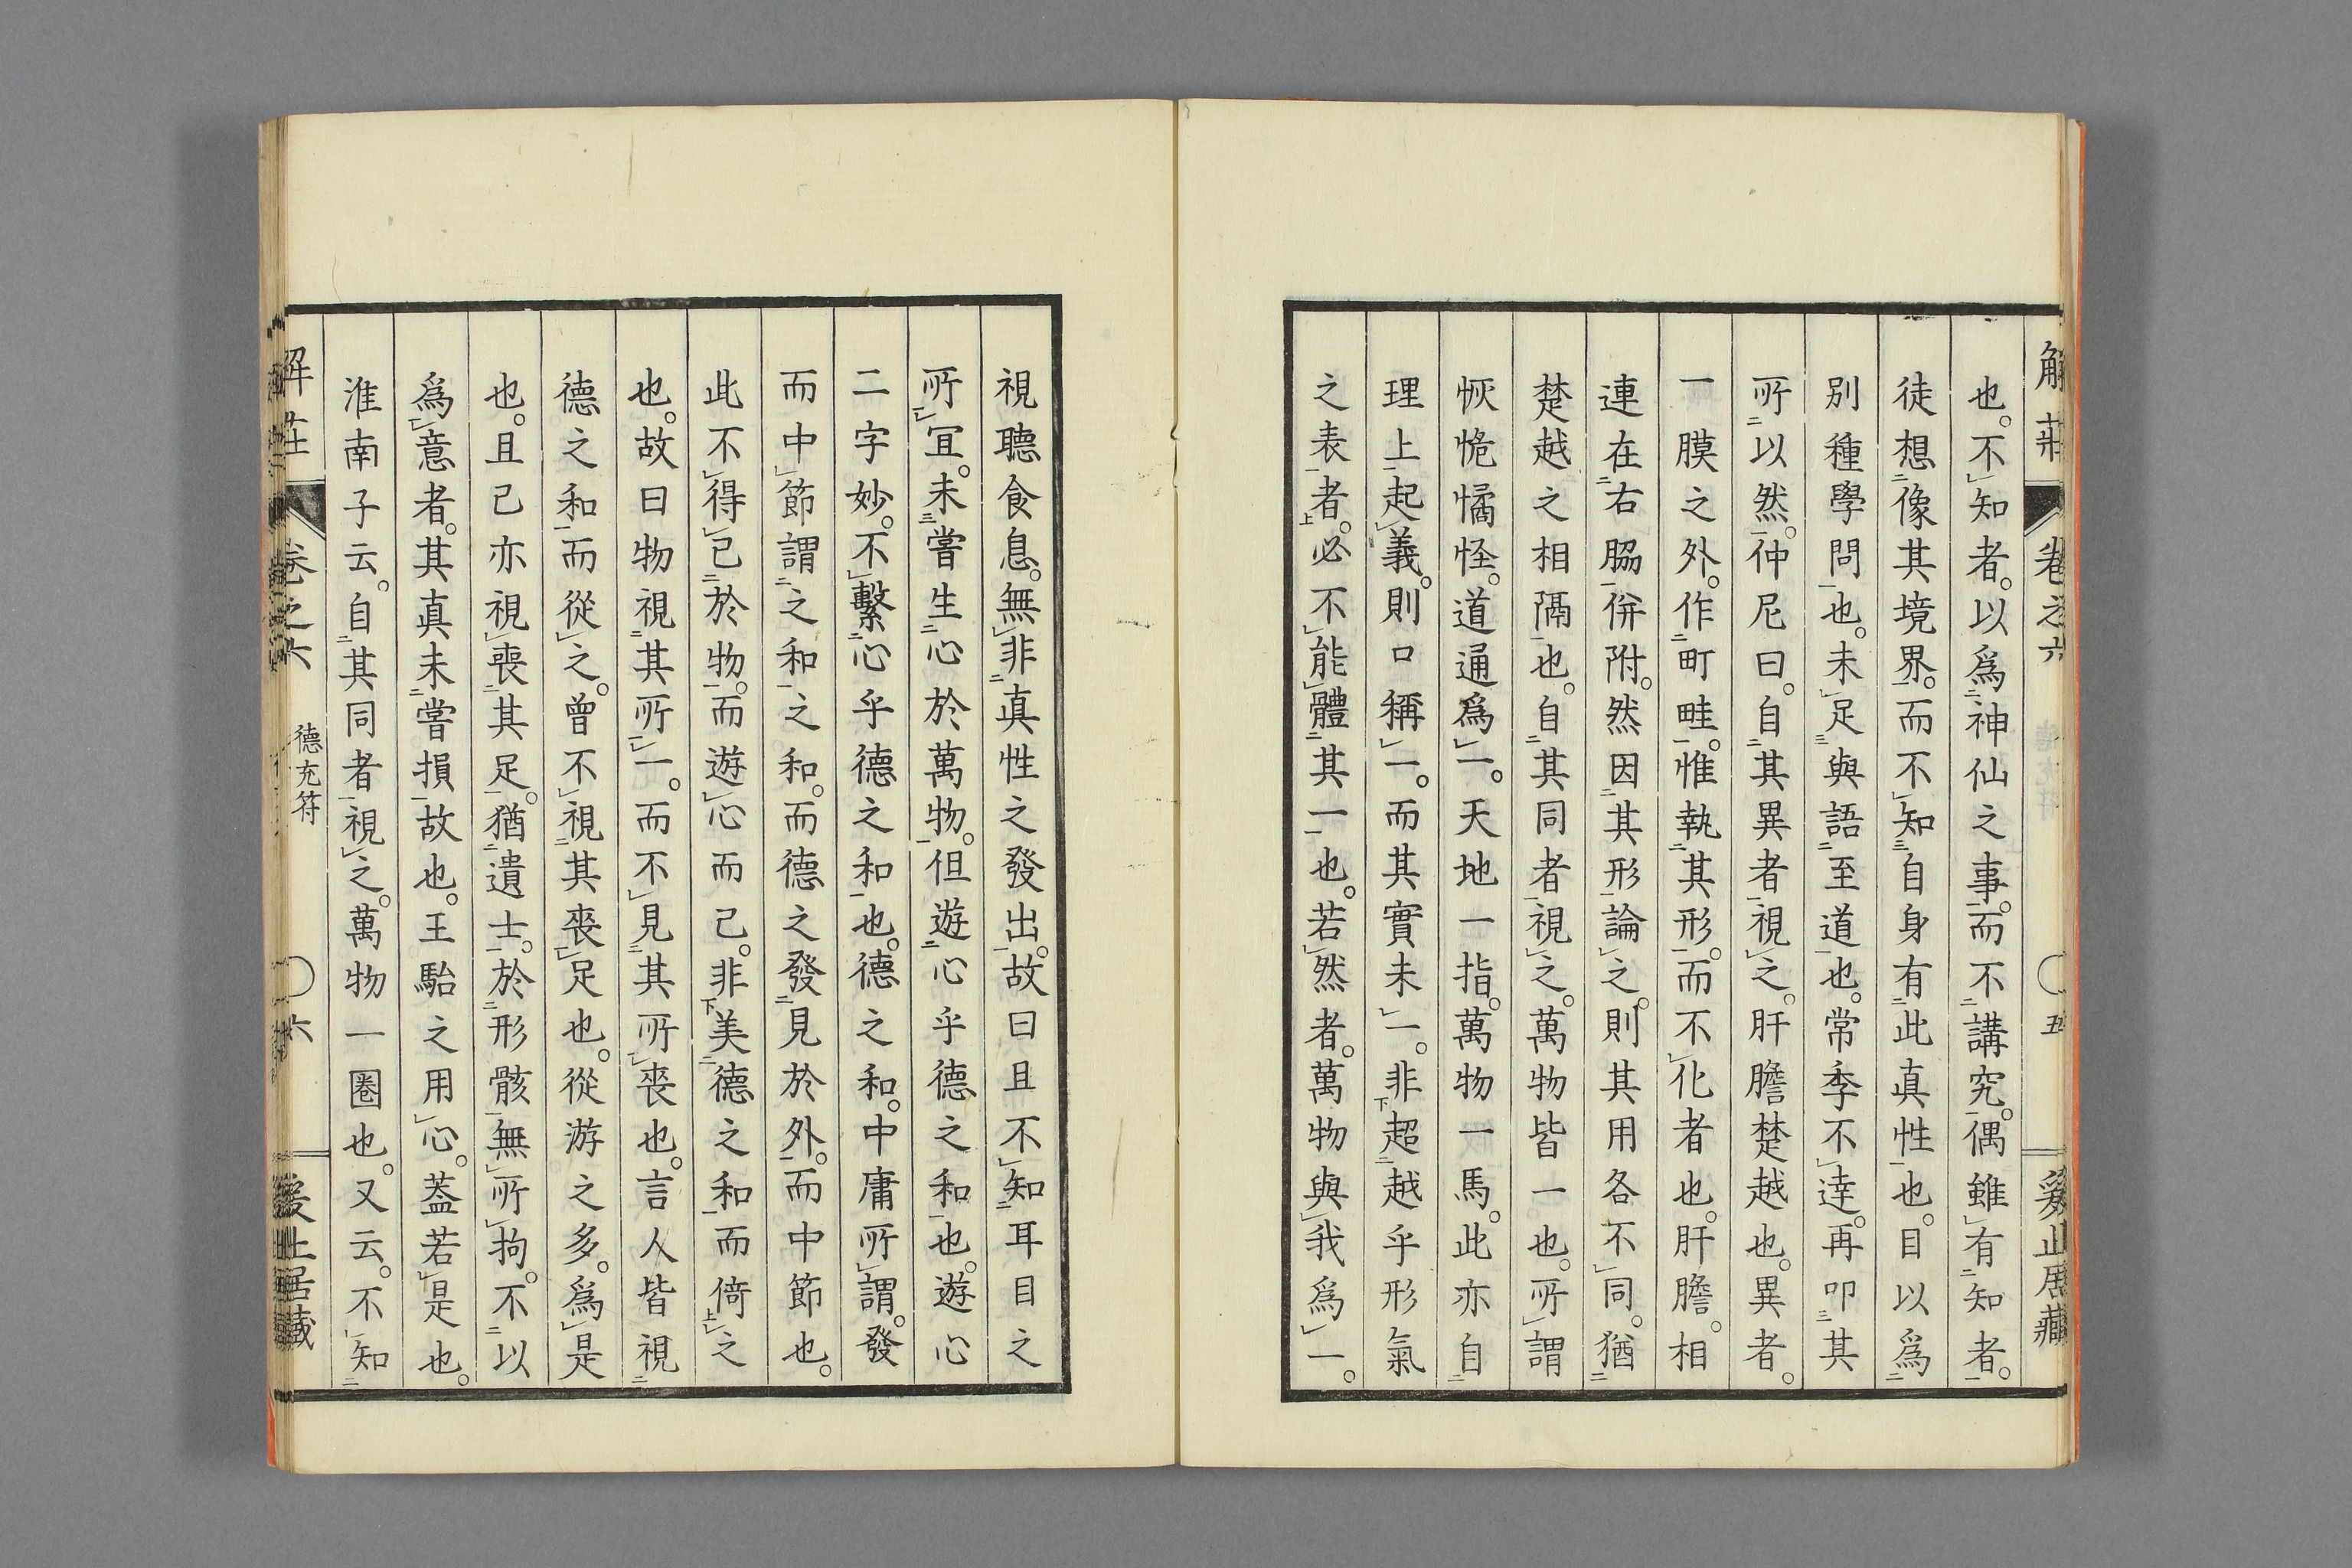 解莊 卷之六 〇五 爰止居藏
也。不知者。以爲神仙之事。而不講究。偶雖有知者。
徒想像其境界。而不知自身有此真性也。目以爲
別種學問也。未足與語至道也。常季不達。再叩其
所以然。仲尼曰。自其異者視之。肝膽楚越也。異者。
一膜之外。作町畦。惟執其形。而不化者也。肝膽。相
連在右脇併附。然因其形論之。則其用各不同。猶
楚越之相隔也。自其同者視之。萬物皆一也。所謂
恢恑憰怪。道通爲一。天地一指。萬物一馬。此亦自
理上起義。則口稱一。而其實未一。非超越乎形氣
之表者。必不能體其一也。若然者。萬物與我爲一。
視聽食息。無非真性之發出。故曰且不知耳目之
所宜。未嘗生心於萬物。但遊心乎德之和也。遊心
二字妙。不繫心乎德之和也。德之和。中庸所謂。發
而中節謂之和之和。而德之發見於外。而中節也。
此不得已於物。而遊心而已。非美德之和而倚之
也。故曰物視其所一。而不見其所喪也。言人皆視
德之和而從之。曾不視其喪足也。從游之多。爲是
也。且己亦視喪其足。猶遺土。於形骸無所拘。不以
爲意者。其真未嘗損故也。王駘之用心。蓋若是也。
淮南子云。自其同者視之。萬物一圈也。又云。不知
解莊 卷之六 德充符 〇六 爰止居藏